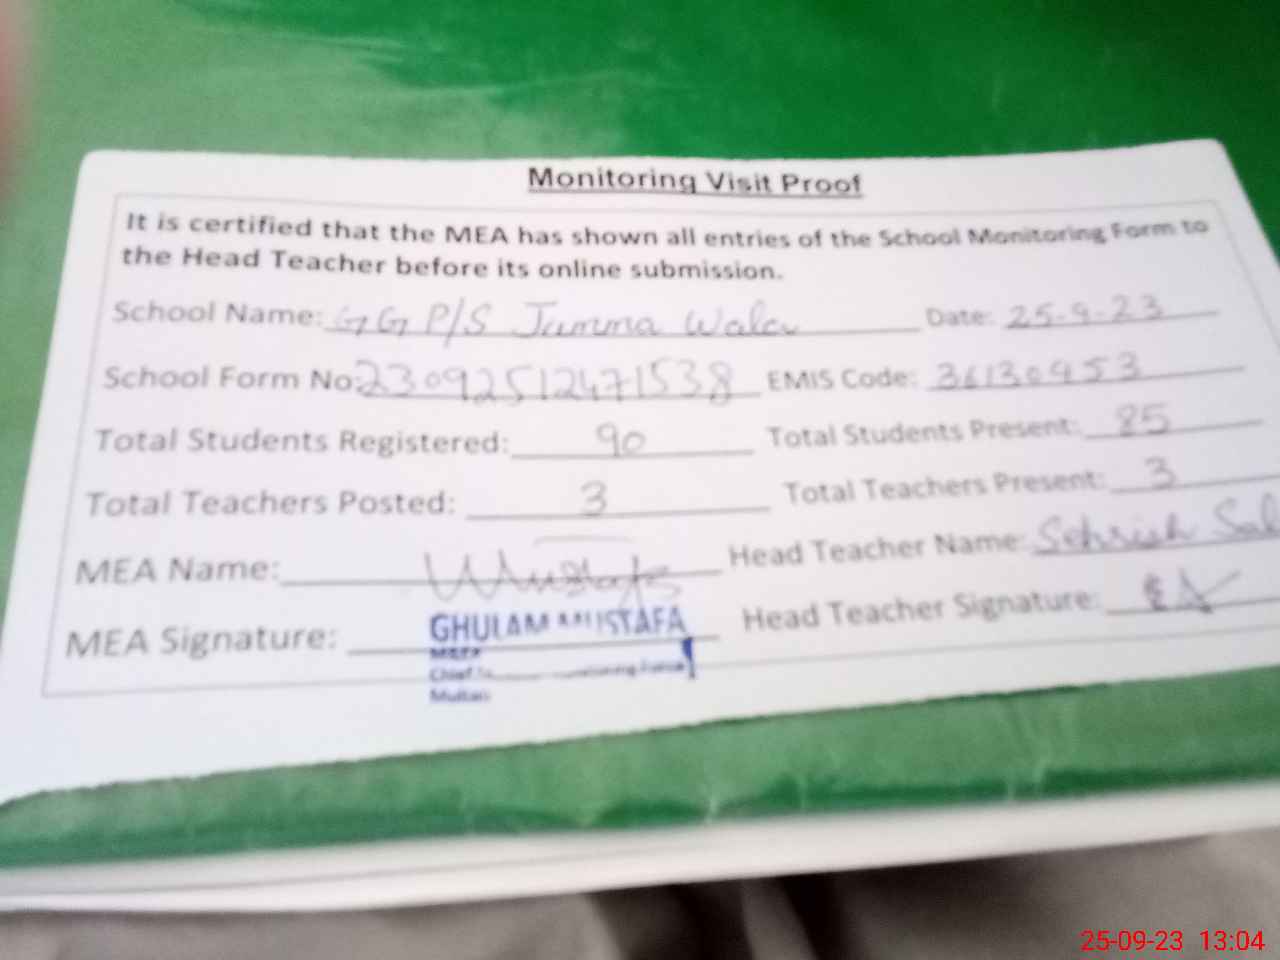 Monitoring Visit Proof
It is certified that the MEA has shown all entries of the School Monitoring Form to
the Head Teacher before its online submission.
School Name: GG P/S Jumma Wala Date: 25-9-23
School Form No: 23092512471538 EMIS Code: 36130453
Total Students Registered: 90 Total Students Present: 85
Total Teachers Posted: 3 Total Teachers Present: 3
MEA Name: Head Teacher Name: Sehrish Sal
MEA Signature: GHULAM MUSTAFA Head Teacher Signature:
Multan
25-09-23 13:04